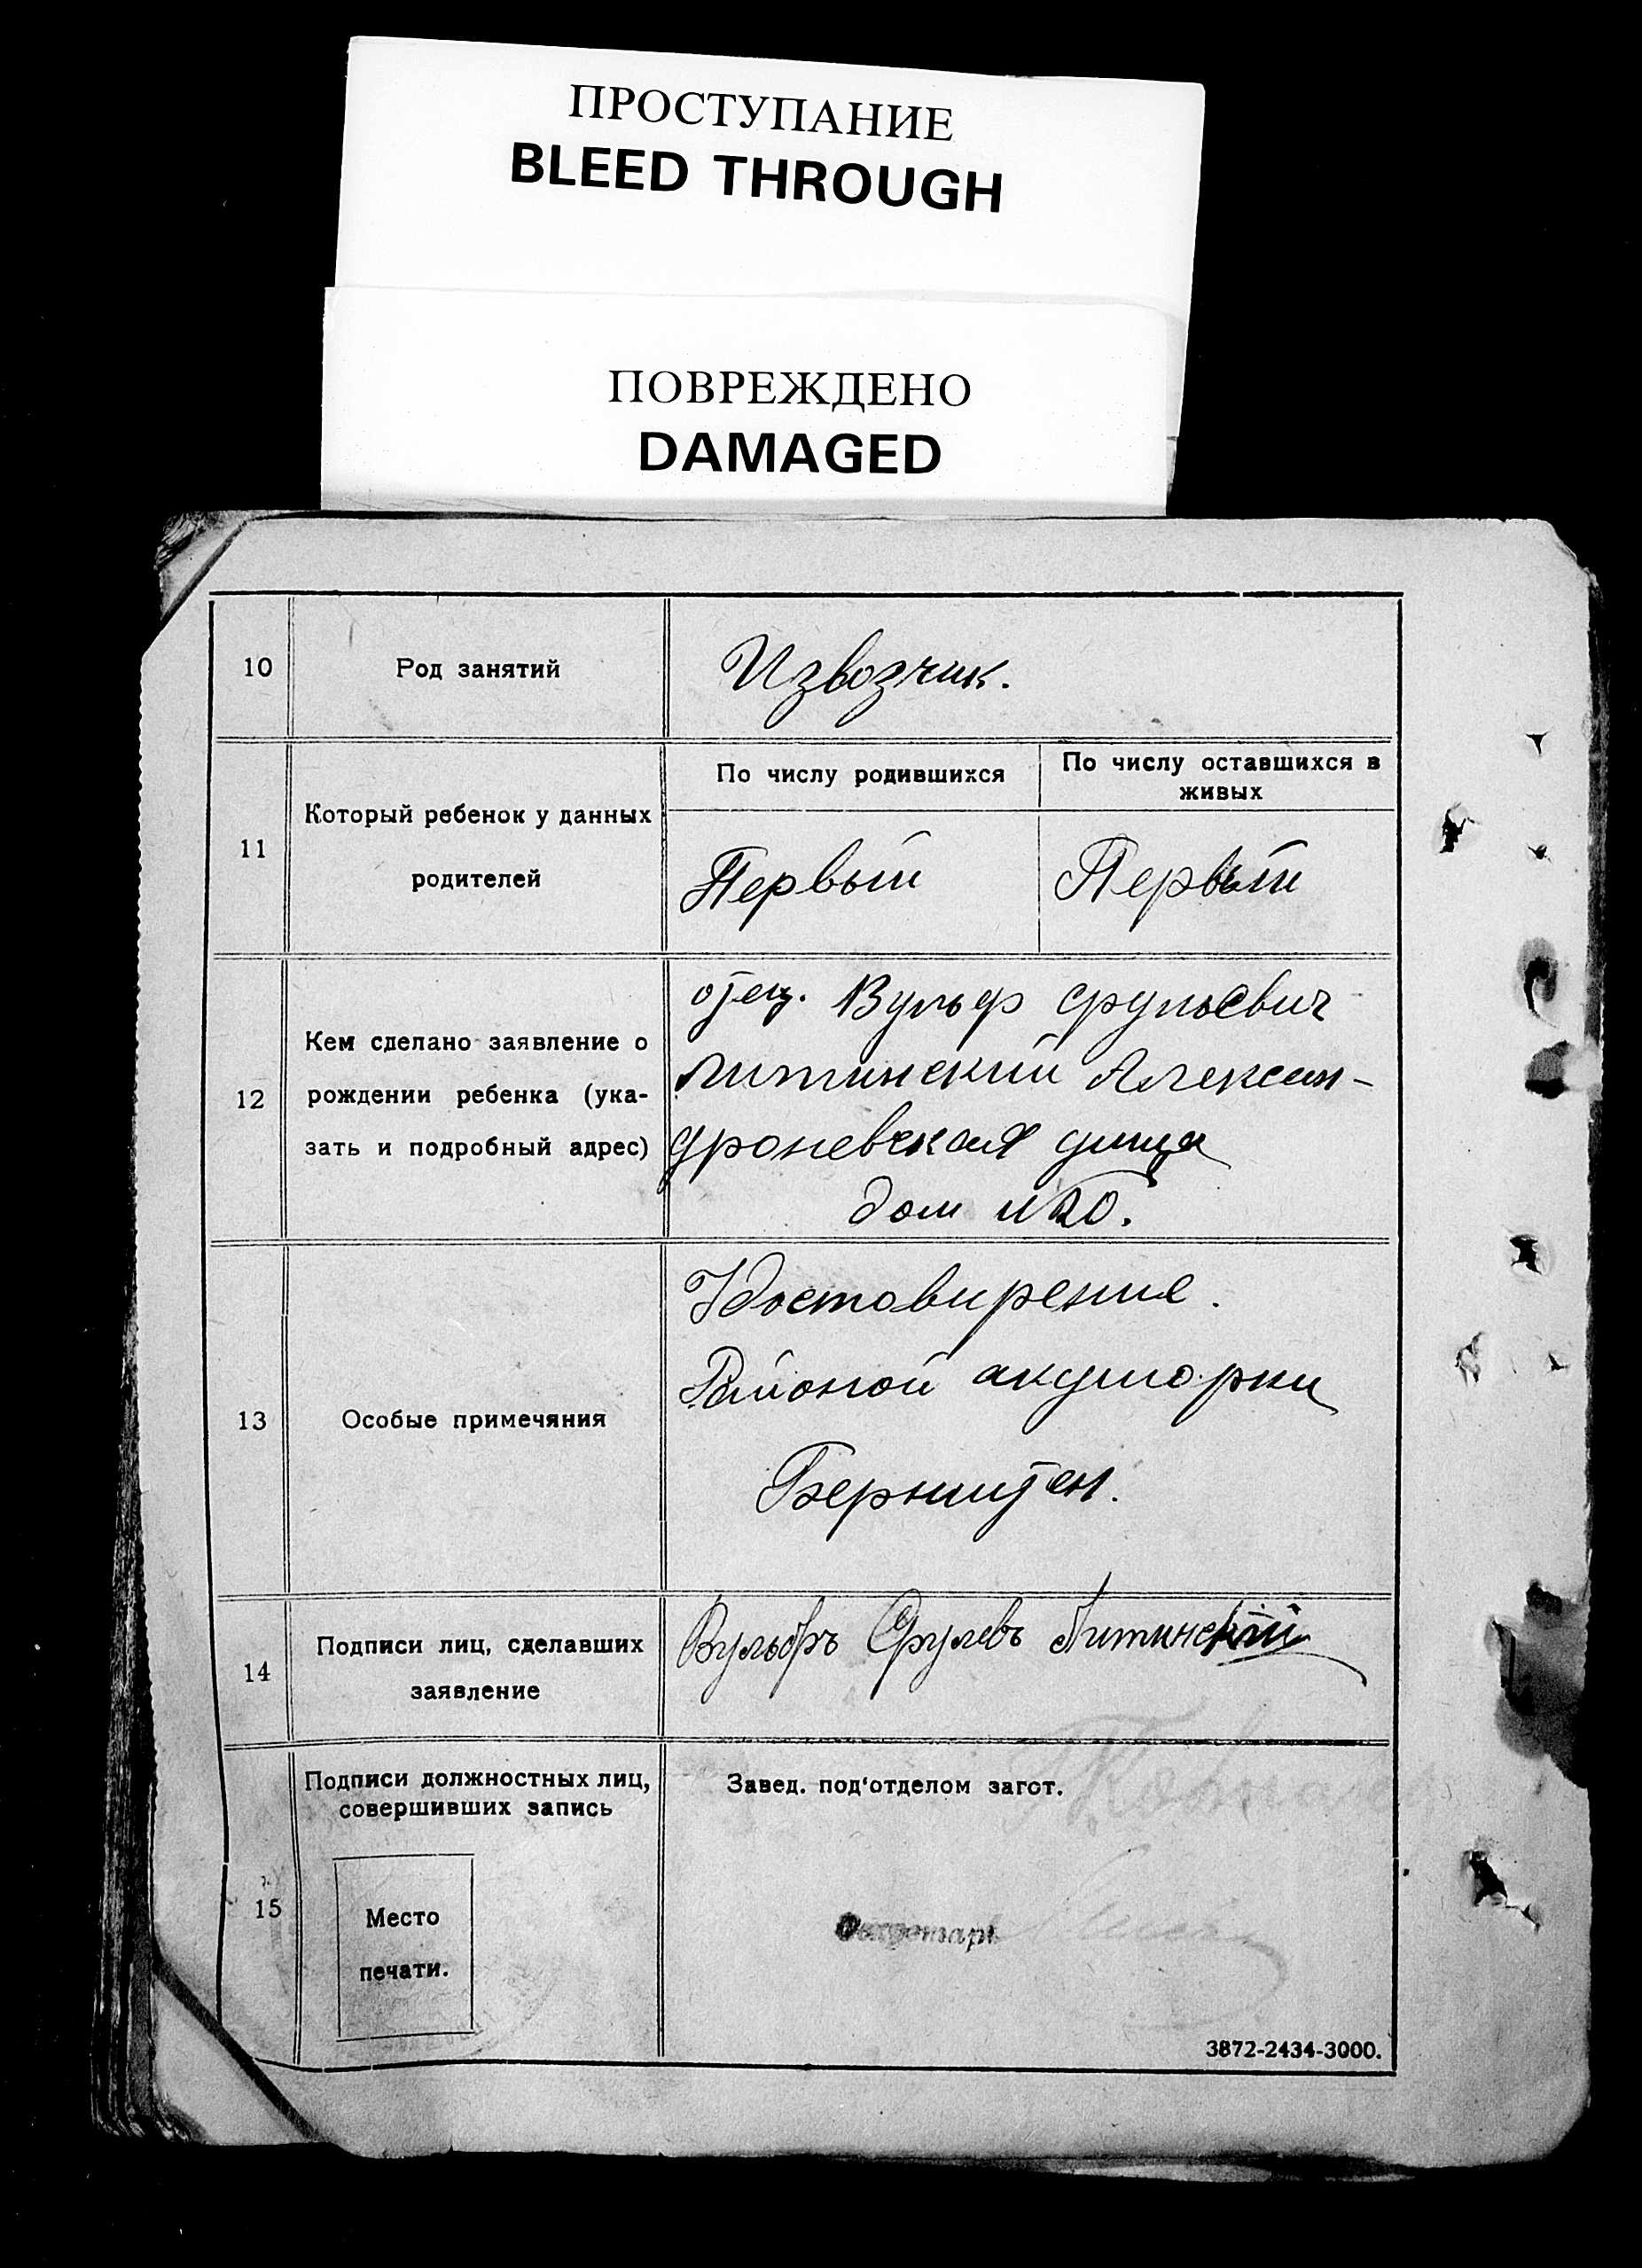 ПРОСТУПАНИЕ
BLEED THROUGH
ПОВРЕЖДЕНО
DAMAGED
10
Род занятий
Извозчик.
11
Который ребенок у данных
родителей
По числу родившихся
Первый
По числу оставшихся в
живых
Первый
12
Кем сделано заявление о
рождении ребенка (ука-
зать и подробный адрес)
отец. Вульф Срульевич
Литинский Алексан-
дроневская улица
дом №20.
13
Особые примечяния
Удостовирение.
Районой акушорки
Бернштен.
14
Подписи лиц, сделавших
заявление
Вульфъ Срулевъ Литинский
15
Подписи должностных лиц,
совершивших запись
Место
печати.
Завед. под‘отделом загот.
Секретарь
3872-2434-3000.